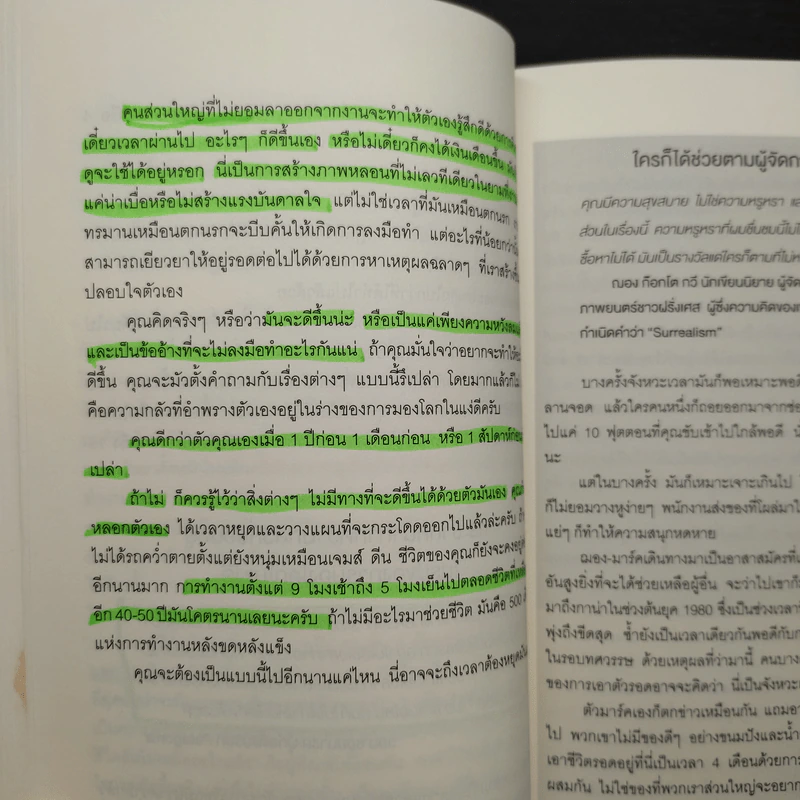 คนส่วนใหญ่ที่ไม่ยอมลาออกจากงานจะทำให้ตัวเองรู้สึกดีด้วย
เดี๋ยวเวลาผ่านไป อะไรๆ ก็ดีขึ้นเอง หรือไม่เดี๋ยวก็คงได้เงินเดือนขึ้น
ดูจะใช้ได้อยู่หรอก นี่เป็นการสร้างภาพหลอนที่ไม่เลวทีเดียวในยามที่
แค่น่าเบื่อหรือไม่สร้างแรงบันดาลใจ แต่ไม่ใช่เวลาที่มันเหมือนตกนรก
ทรมานเหมือนตกนรกจะบีบคั้นให้เกิดการลงมือทำ แต่อะไรที่น้อยกว่า
สามารถเยียวยาให้อยู่รอดต่อไปได้ด้วยการหาเหตุผลฉลาดๆ ที่เราสร้างขึ้น
ปลอบใจตัวเอง
คุณคิดจริงๆ หรือว่ามันจะดีขึ้นน่ะ หรือเป็นแค่เพียงความหวัง
และเป็นข้ออ้างที่จะไม่ลงมือทำอะไรกันแน่ ถ้าคุณมั่นใจว่าอยากจะทำให้
ดีขึ้น คุณจะมัวตั้งคำถามกับเรื่องต่างๆ แบบนี้รึเปล่า โดยมากแล้วก็ไม่
คือความกลัวที่อำพรางตัวเองอยู่ในร่างของการมองโลกในแง่ดีครับ
คุณดีกว่าตัวคุณเองเมื่อ 1 ปีก่อน 1 เดือนก่อน หรือ 1 สัปดาห์ก่อน
เปล่า
ถ้าไม่ ก็ควรรู้ไว้ว่าสิ่งต่างๆ ไม่มีทางที่จะดีขึ้นได้ด้วยตัวมันเอง
หลอกตัวเอง ได้เวลาหยุดและวางแผนที่จะกระโดดออกไปแล้วล่ะครับ ถ้า
ไม่ได้รถคว่ำตายตั้งแต่ยังหนุ่มเหมือนเจมส์ ดีน ชีวิตของคุณก็ยังจะคงอยู่
อีกนานมาก การทำงานตั้งแต่ 9 โมงเช้าถึง 5 โมงเย็นไปตลอดชีวิตที่
อีก 40-50 ปีมันโคตรนานเลยนะครับ ถ้าไม่มีอะไรมาช่วยชีวิต มันคือ 500
แห่งการทำงานหลังขดหลังแข็ง
คุณจะต้องเป็นแบบนี้ไปอีกนานแค่ไหน นี่อาจจะถึงเวลาต้องหยุด
ใครก็ได้ช่วยตามผู้จัดกา
คุณมีความสุขสบาย ไม่ใช่ความหรูหรา
ส่วนในเรื่องนี้ ความหรูหราที่ผมชื่นชมนี้ไม่
ซื้อหาไม่ได้ มันเป็นรางวัลแด่ใครก็ตามที่ไม่
ฌอง ก็อกโต กวี นักเขียนนิยาย ผู้จัด
ภาพยนตร์ชาวฝรั่งเศส ผู้ซึ่งความคิดของ
กำเนิดคำว่า "Surrealism"
บางครั้งจังหวะเวลามันก็พอเหมาะพอดี
ลานจอด แล้วใครคนหนึ่งก็ถอยออกมาจากช่อง
ไปแค่ 10 ฟุตตอนที่คุณขับเข้าไปใกล้พอดี
นะ
แต่ในบางครั้ง มันก็เหมาะเจาะเกินไป
ก็ไม่ยอมวางหูง่ายๆ พนักงานส่งของที่โผล่มา
แย่ๆ ก็ทำให้ความสนุกหดหาย
ฌอง-มาร์คเดินทางมาเป็นอาสาสมัครที่
อันสูงยิ่งที่จะได้ช่วยเหลือผู้อื่น จะว่าไปเขาก็
มาถึงกาน่าในช่วงต้นยุค 1980 ซึ่งเป็นช่วงเวลา
พุ่งถึงขีดสุด ซ้ำยังเป็นเวลาเดียวกันพอดีกับ
ในรอบทศวรรษ ด้วยเหตุผลที่ว่ามานี้ คนบาง
ของการเอาตัวรอดอาจจะคิดว่า นี่เป็นจังหวะ
ตัวมาร์คเองก็ตกข่าวเหมือนกัน แถม
ไป พวกเขาไม่มีของดีๆ อย่างขนมปังและน้ำ
เอาชีวิตรอดอยู่ที่นี่เป็นเวลา 4 เดือนด้วยการ
ผสมกัน ไม่ใช่ของที่พวกเราส่วนใหญ่จะอยาก